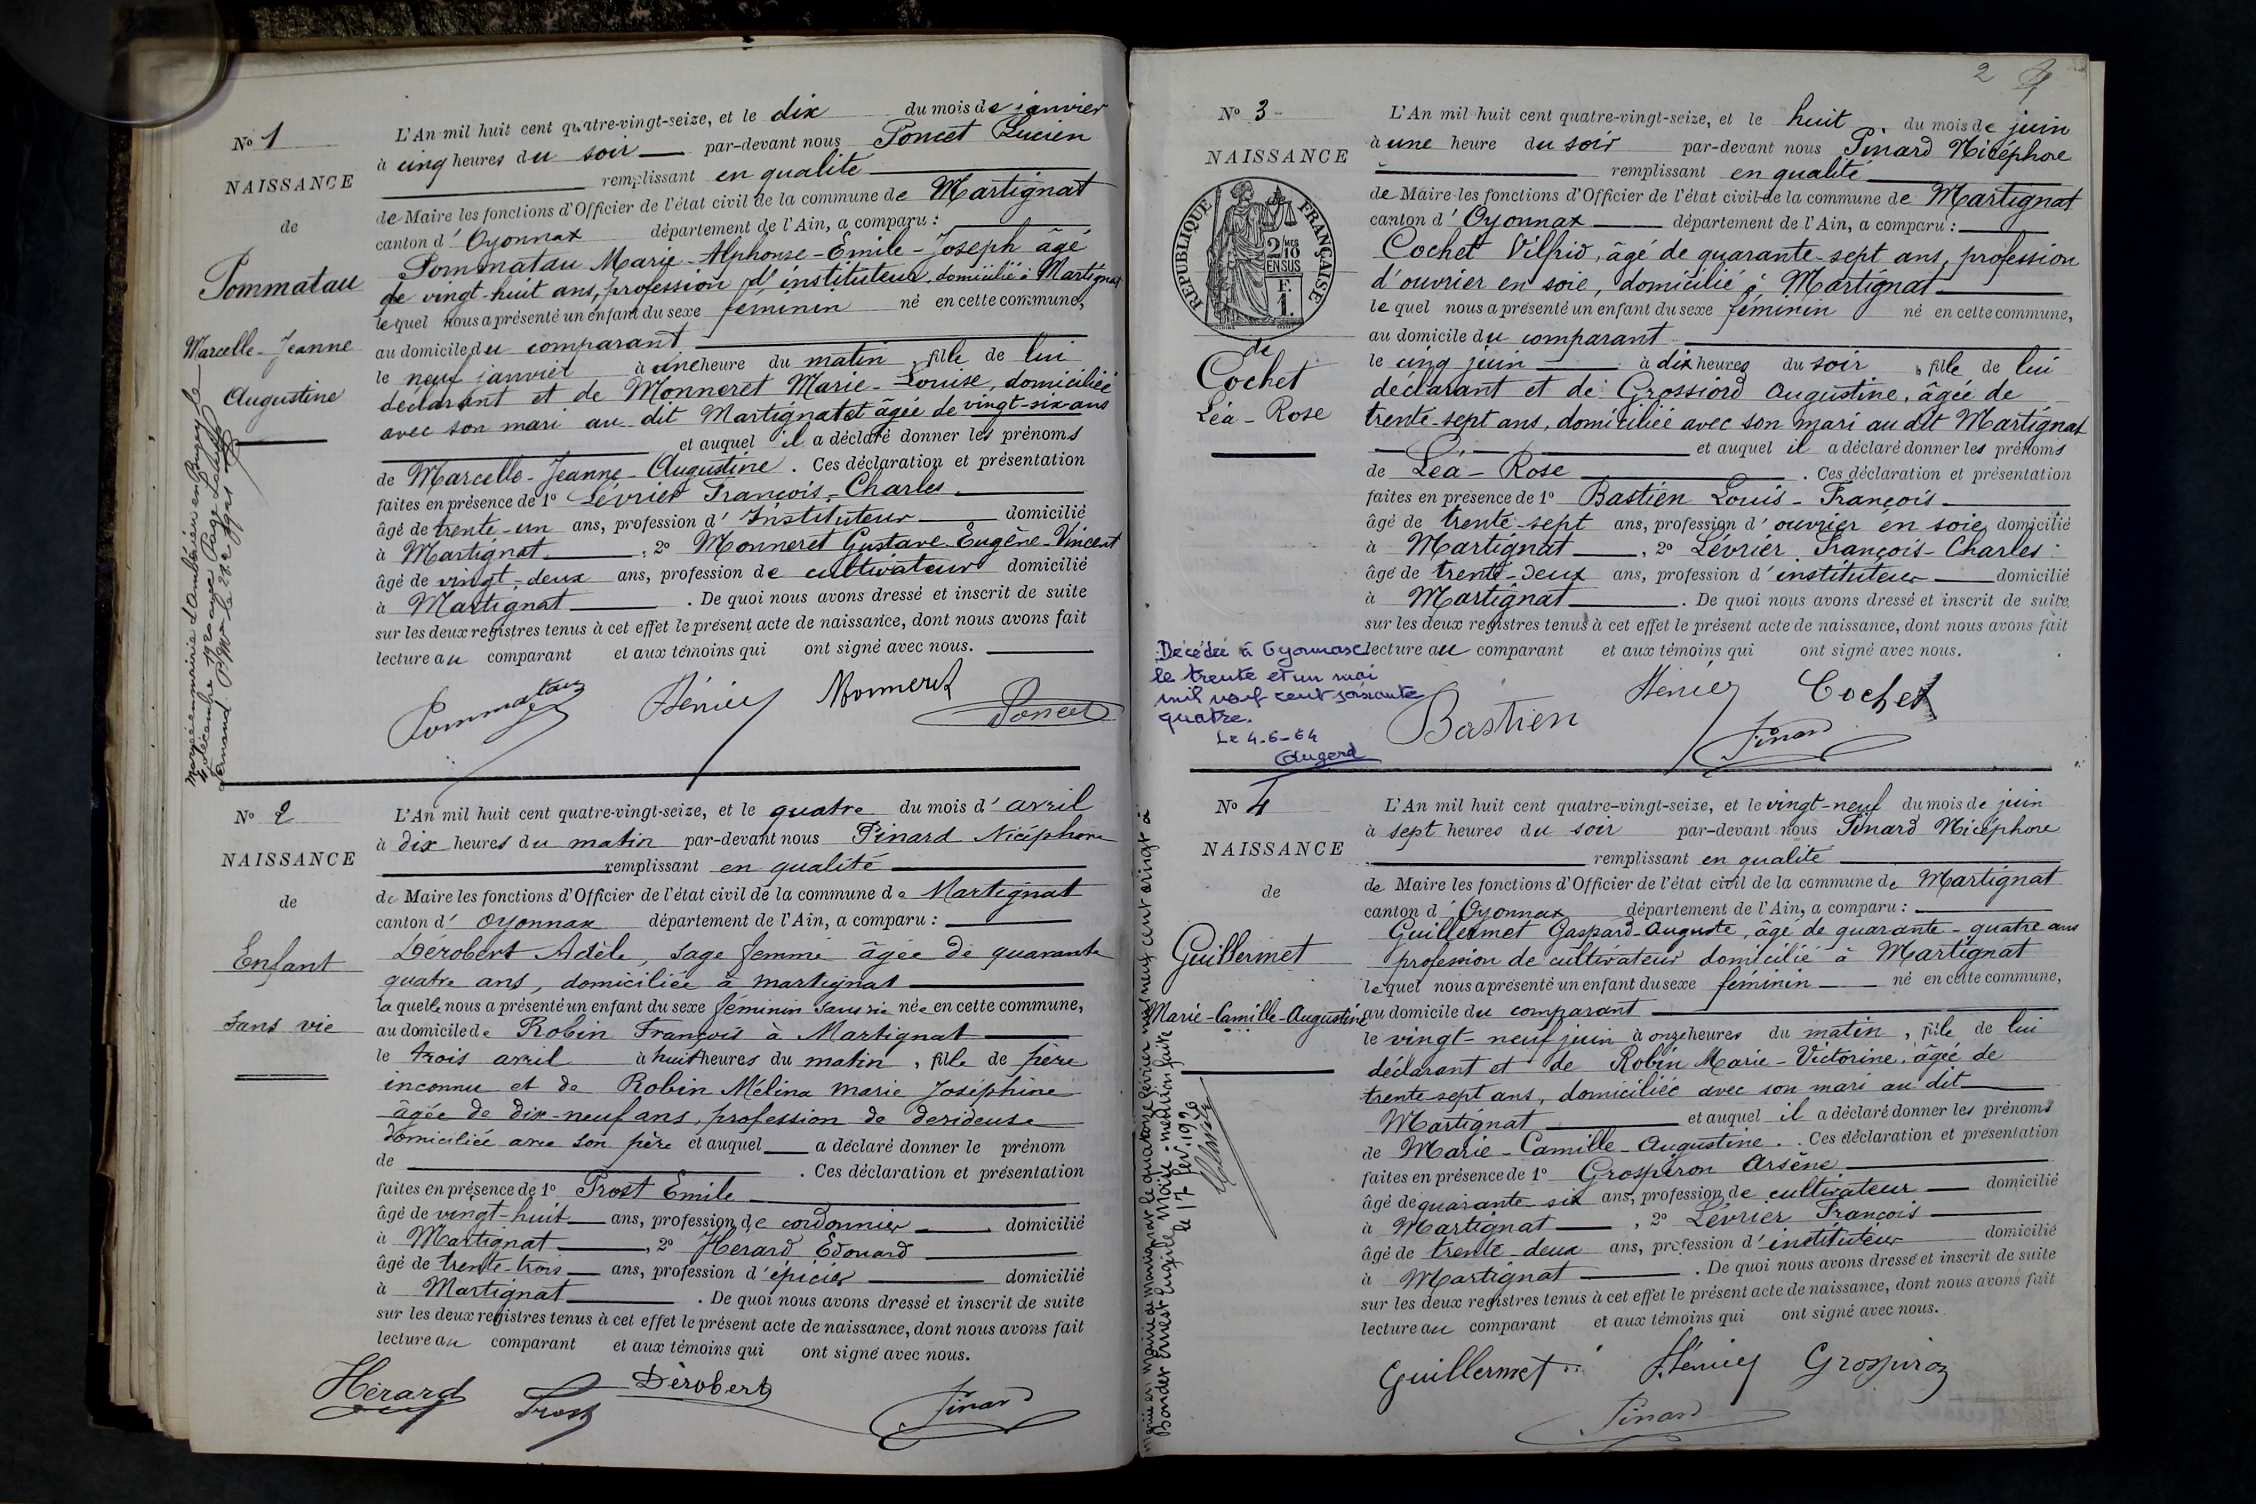 N° 1
NAISSANCE
de
Pommatau
Marcelle-Jeanne
Augustine
L'An mil huit cent quatre-vingt-seize, et le dix du mois de janvier
à cinq heures du soir par-devant nous Poncet Lucien
remplissant en qualité
de Maire les fonctions d'Officier de l'état civil de la commune de Martignat
canton d'Oyonnax département de l'Ain, a comparu :
Pommatau Marie-Alphonse-Emile-Joseph âgé
de vingt-huit ans, profession d'instituteur, domicilié à Martignat
lequel nous a présenté un enfant du sexe féminin né en cette commune,
au domicile du comparant
le neuf janvier à une heure du matin, fille de lui
déclarant et de Monneret Marie-Louise, domiciliée
avec son mari au dit Martignat et âgée de vingt-six ans
et auquel il a déclaré donner les prénoms
de Marcelle-Jeanne-Augustine. Ces déclaration et présentation
faites en présence de 1° Lévrier François-Charles
âgé de trente-un ans, profession d'Instituteur domicilié
à Martignat, 2° Monneret Gustave-Eugène-Vincent
âgé de vingt-deux ans, profession de cultivateur domicilié
à Martignat. De quoi nous avons dressé et inscrit de suite
sur les deux registres tenus à cet effet le présent acte de naissance, dont nous avons fait
lecture au comparant et aux témoins qui ont signé avec nous.
Pommatau Monneret Poncet
N° 2
NAISSANCE
de
Enfant
sans vie
L'An mil huit cent quatre-vingt-seize, et le quatre du mois d'avril
à dix heures du matin par-devant nous Pinard Nicéphore
remplissant en qualité
de Maire les fonctions d'Officier de l'état civil de la commune de Martignat
canton d'Oyonnax département de l'Ain, a comparu :
Dérobert Adèle, sage femme âgée de quarante
quatre ans, domiciliée à Martignat
laquelle nous a présenté un enfant du sexe féminin sans vie née en cette commune,
au domicile de Robin François à Martignat
le trois avril à huit heures du matin, fille de père
inconnu et de Robin Mélina Marie Joséphine
âgée de dix-neuf ans, profession de devideuse
domiciliée avec son père et auquel a déclaré donner le prénom
de . Ces déclaration et présentation
faites en présence de 1° Prost Emile
âgé de vingt-huit ans, profession de cordonnier domicilié
à Martignat, 2° Herard Edouard
âgé de trente-trois ans, profession d'épicier domicilié
à Martignat. De quoi nous avons dressé et inscrit de suite
sur les deux registres tenus à cet effet le présent acte de naissance, dont nous avons fait
lecture au comparant et aux témoins qui ont signé avec nous.
Hérard Prost Dérobert Pinard
2
N° 3
NAISSANCE
RÉPUBLIQUE FRANÇAISE
2/10 MES
EN SUS
F.
1.
de
Cochet
Léa-Rose
L'An mil huit cent quatre-vingt-seize, et le huit du mois de juin
à une heure du soir par-devant nous Pinard Nicéphore
remplissant en qualité
de Maire les fonctions d'Officier de l'état civil de la commune de Martignat
canton d'Oyonnax département de l'Ain, a comparu :
Cochet Vilfrid, âgé de quarante-sept ans, profession
d'ouvrier en soie, domicilié à Martignat
lequel nous a présenté un enfant du sexe féminin né en cette commune,
au domicile du comparant
le cinq juin à dix heures du soir, fille de lui
déclarant et de Grossiord Augustine, âgée de
trente-sept ans, domiciliée avec son mari au dit Martignat
et auquel il a déclaré donner les prénoms
de Léa-Rose. Ces déclaration et présentation
faites en présence de 1° Bastien Louis-François
âgé de trente-sept ans, profession d'ouvrier en soie domicilié
à Martignat, 2° Lévrier François-Charles
âgé de trente-deux ans, profession d'instituteur domicilié
à Martignat. De quoi nous avons dressé et inscrit de suite
sur les deux registres tenus à cet effet le présent acte de naissance, dont nous avons fait
lecture au comparant et aux témoins qui ont signé avec nous.
Décédée à Oyonnax
le trente et un mai
mil neuf cent soixante
quatre.
Le 4-6-64
Bastien Cochet
Pinard
N° 4
NAISSANCE
de
Guillermet
Marie-Camille-Augustine
L'An mil huit cent quatre-vingt-seize, et le vingt-neuf du mois de juin
à sept heures du soir par-devant nous Pinard Nicéphore
remplissant en qualité
de Maire les fonctions d'Officier de l'état civil de la commune de Martignat
canton d'Oyonnax département de l'Ain, a comparu :
Guillermet Gaspard-Auguste, âgé de quarante-quatre ans
profession de cultivateur domicilié à Martignat
lequel nous a présenté un enfant du sexe féminin né en cette commune,
au domicile du comparant
le vingt-neuf juin à onze heures du matin, fille de lui
déclarant et de Robin Marie-Victorine, âgée de
trente-sept ans, domiciliée avec son mari au dit
Martignat et auquel il a déclaré donner les prénoms
de Marie-Camille-Augustine. Ces déclaration et présentation
faites en présence de 1° Grospiron Arsène
âgé de quarante-six ans, profession de cultivateur domicilié
à Martignat, 2° Lévrier François
âgé de trente-deux ans, profession d'instituteur domicilié
à Martignat. De quoi nous avons dressé et inscrit de suite
sur les deux registres tenus à cet effet le présent acte de naissance, dont nous avons fait
lecture au comparant et aux témoins qui ont signé avec nous.
le 17 fév. 1926
Guillermet Grospiron
Pinard